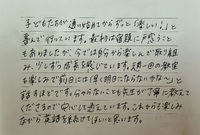 子どもたちが通い始めてからずっと「楽しい!」と
喜んで行っています。教材は宿題に戸惑うこと
もありましたが、今では自分から楽しんで取り組
み、少しずつ成長を感じています。週一回の教室
も楽しみで前日には「早く明日にならないかな~」と
話すほどです。分からないことも先生が丁寧に教えて
くださるので安心して通えています。これからも楽しみ
ながら英語を続けてほしいと思います。